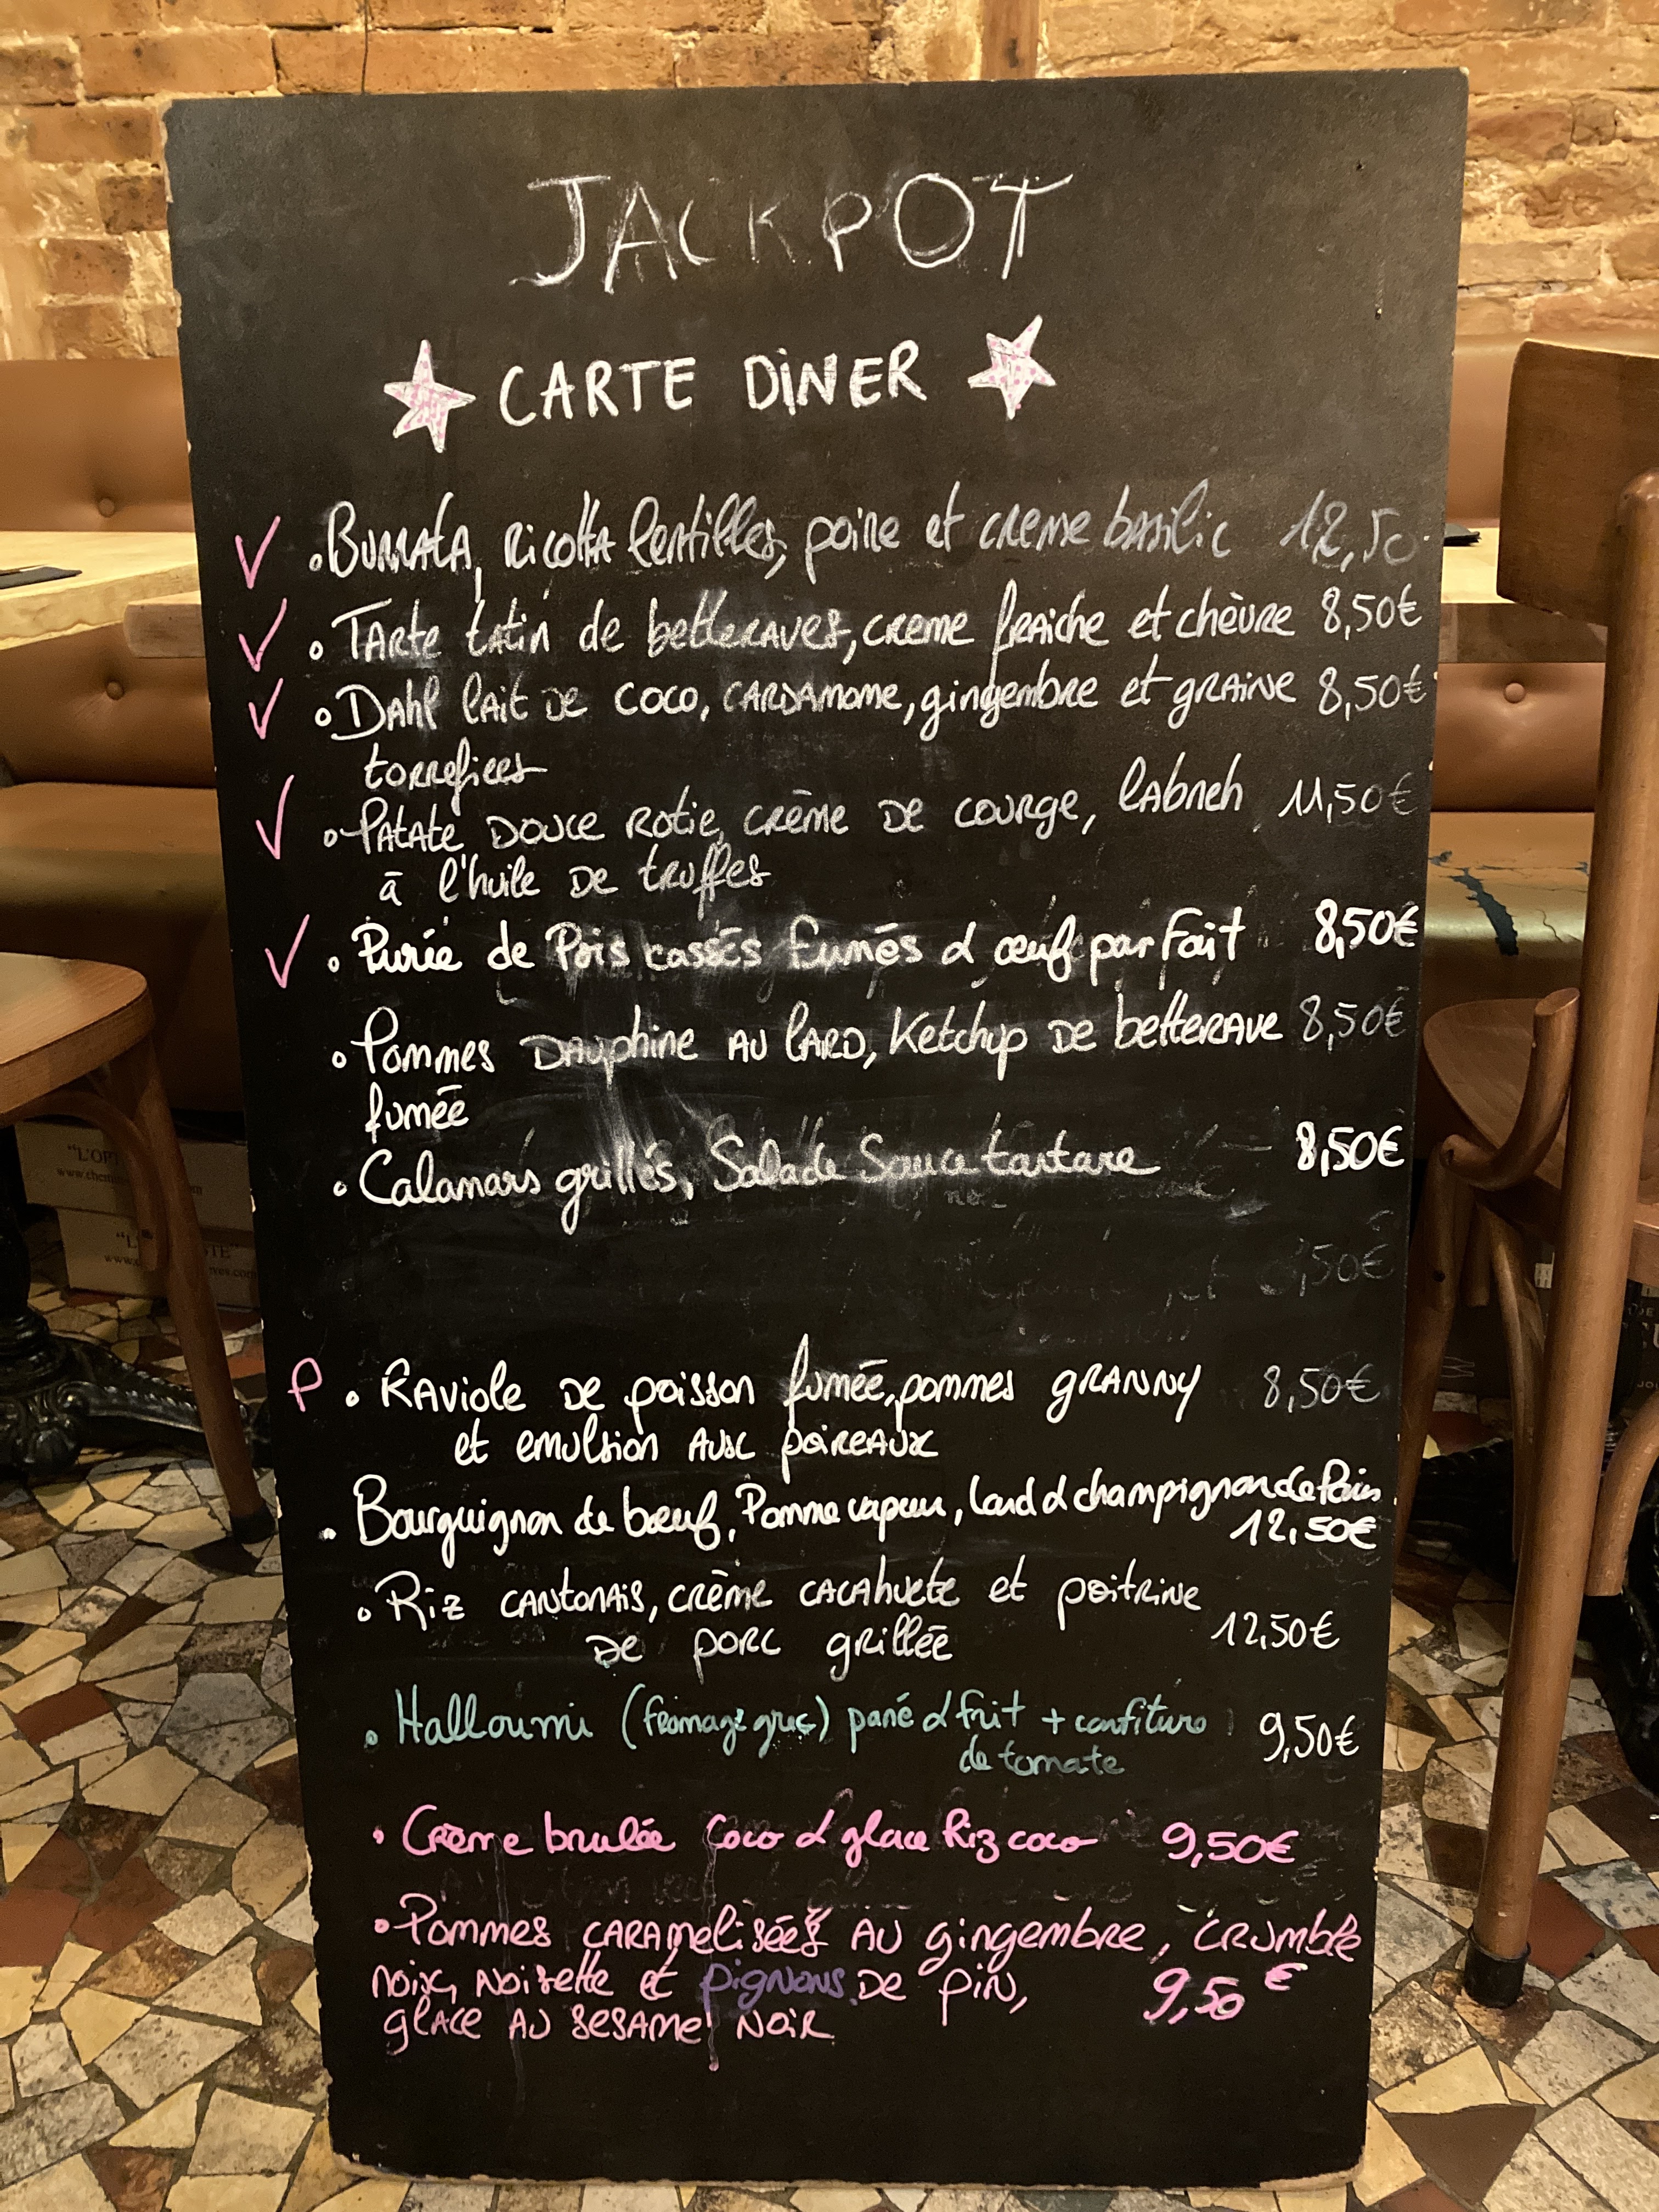 JACKPOT
CARTE DINER
V • BURRATA, Ricotta lentilles, poire et creme basilic 12,50
V • TARte tatin de betteraves, creme fraiche et chèvre 8,50€
V • Dahl lait de coco, cardamome, gingembre et graine 8,50€
torrefiees
V • Patate douce rotie, crème de courge, labneh 11,50€
à l'huile de truffes
V • Purée de Pois cassés fumés & œuf parfait 8,50€
• Pommes Dauphine au lard, Ketchup de betterave 8,50€
fumée
• Calamars grillés, Salade Sauce tartare 8,50€
,50€
P • Raviole de poisson fumée, pommes granny 8,50€
et emulsion aux poireaux
• Bourguignon de bœuf, Pomme vapeur, lard & champignon de Paris
12,50€
• Riz cantonais, crème cacahuete et poitrine
de porc grillée 12,50€
• Halloumi (fromage grec) pané & frit + confiture 9,50€
de tomate
• Crème brulée Coco & glace Riz coco 9,50€
• Pommes caramelisées au gingembre, crumble
noix, noisette et pignons de pin, 9,50€
glace au sesame noir